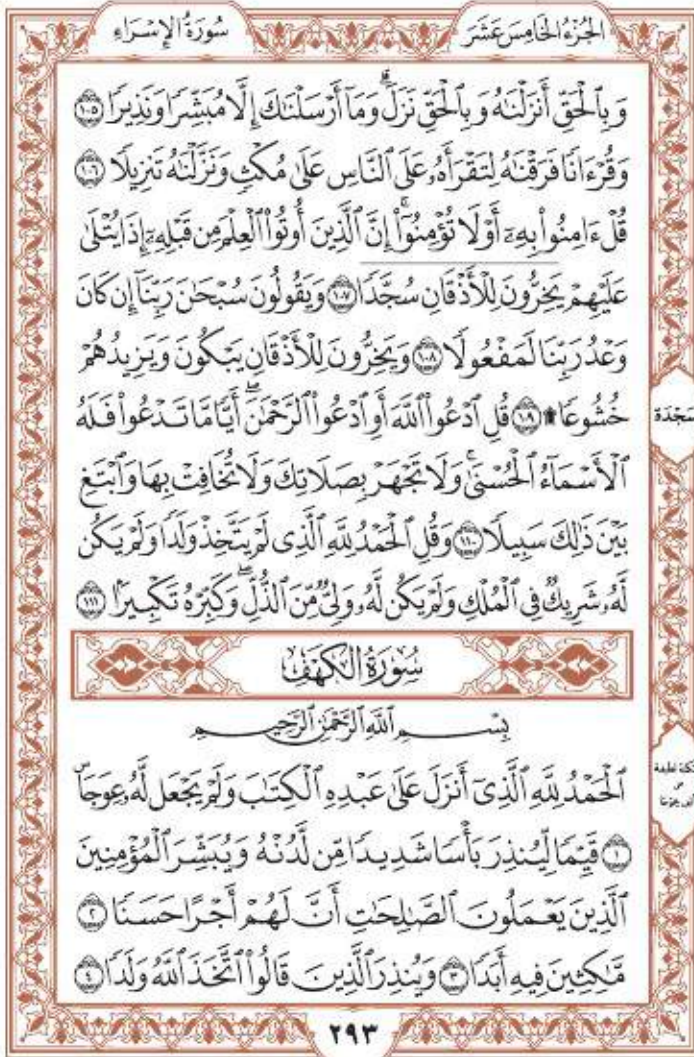 سُورَةُ الإِسْرَاءِ
الجُزْءُ الخَامِسَ عَشَرَ
وَبِٱلْحَقِّ أَنزَلْنَٰهُ وَبِٱلْحَقِّ نَزَلَۗ وَمَآ أَرْسَلْنَٰكَ إِلَّا مُبَشِّرًا وَنَذِيرًا ١٠٥
وَقُرْءَانًا فَرَقْنَٰهُ لِتَقْرَأَهُۥ عَلَى ٱلنَّاسِ عَلَىٰ مُكْثٍ وَنَزَّلْنَٰهُ تَنزِيلًا ١٠٦
قُلْ ءَامِنُوا۟ بِهِۦٓ أَوْ لَا تُؤْمِنُوٓا۟ۚ إِنَّ ٱلَّذِينَ أُوتُوا۟ ٱلْعِلْمَ مِن قَبْلِهِۦٓ إِذَا يُتْلَىٰ
عَلَيْهِمْ يَخِرُّونَ لِلْأَذْقَانِ سُجَّدًا ١٠٧ وَيَقُولُونَ سُبْحَٰنَ رَبِّنَآ إِن كَانَ
وَعْدُ رَبِّنَا لَمَفْعُولًا ١٠٨ وَيَخِرُّونَ لِلْأَذْقَانِ يَبْكُونَ وَيَزِيدُهُمْ
خُشُوعًا ۩ ١٠٩ قُلِ ٱدْعُوا۟ ٱللَّهَ أَوِ ٱدْعُوا۟ ٱلرَّحْمَٰنَۖ أَيًّا مَّا تَدْعُوا۟ فَلَهُ
سَجْدَة
ٱلْأَسْمَآءُ ٱلْحُسْنَىٰۚ وَلَا تَجْهَرْ بِصَلَاتِكَ وَلَا تُخَافِتْ بِهَا وَٱبْتَغِ
بَيْنَ ذَٰلِكَ سَبِيلًا ١١٠ وَقُلِ ٱلْحَمْدُ لِلَّهِ ٱلَّذِى لَمْ يَتَّخِذْ وَلَدًا وَلَمْ يَكُن
لَّهُۥ شَرِيكٌ فِى ٱلْمُلْكِ وَلَمْ يَكُن لَّهُۥ وَلِىٌّ مِّنَ ٱلذُّلِّۖ وَكَبِّرْهُ تَكْبِيرًۢا ١١١
سُورَةُ الكَهْفِ
بِسْمِ ٱللَّهِ ٱلرَّحْمَٰنِ ٱلرَّحِيمِ
ٱلْحَمْدُ لِلَّهِ ٱلَّذِىٓ أَنزَلَ عَلَىٰ عَبْدِهِ ٱلْكِتَٰبَ وَلَمْ يَجْعَل لَّهُۥ عِوَجَاۜ
١ قَيِّمًا لِّيُنذِرَ بَأْسًا شَدِيدًا مِّن لَّدُنْهُ وَيُبَشِّرَ ٱلْمُؤْمِنِينَ
ٱلَّذِينَ يَعْمَلُونَ ٱلصَّٰلِحَٰتِ أَنَّ لَهُمْ أَجْرًا حَسَنًا ٢
مَّٰكِثِينَ فِيهِ أَبَدًا ٣ وَيُنذِرَ ٱلَّذِينَ قَالُوا۟ ٱتَّخَذَ ٱللَّهُ وَلَدًا ٤
٢٩٣